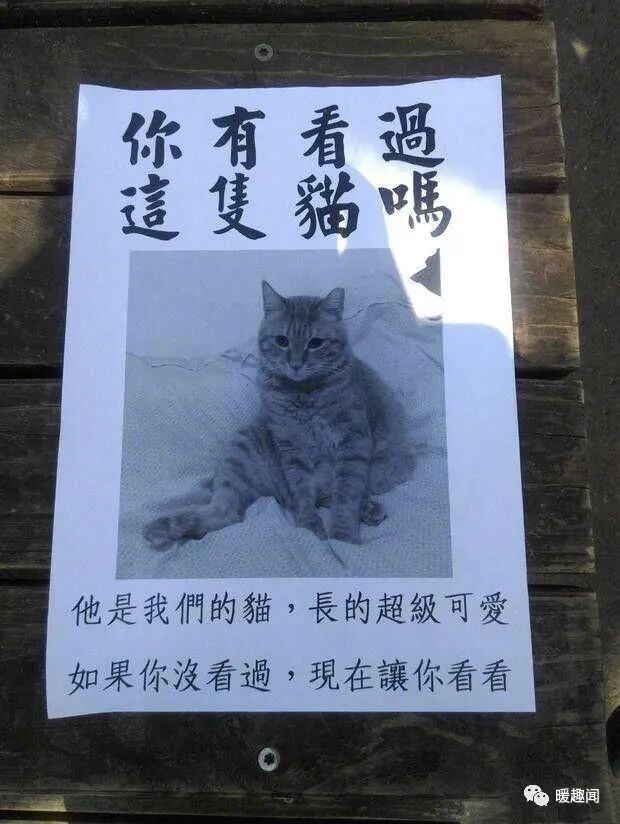 你有看過
這隻貓嗎
他是我們的貓，長的超級可愛
如果你沒看過，現在讓你看看
暖趣闻